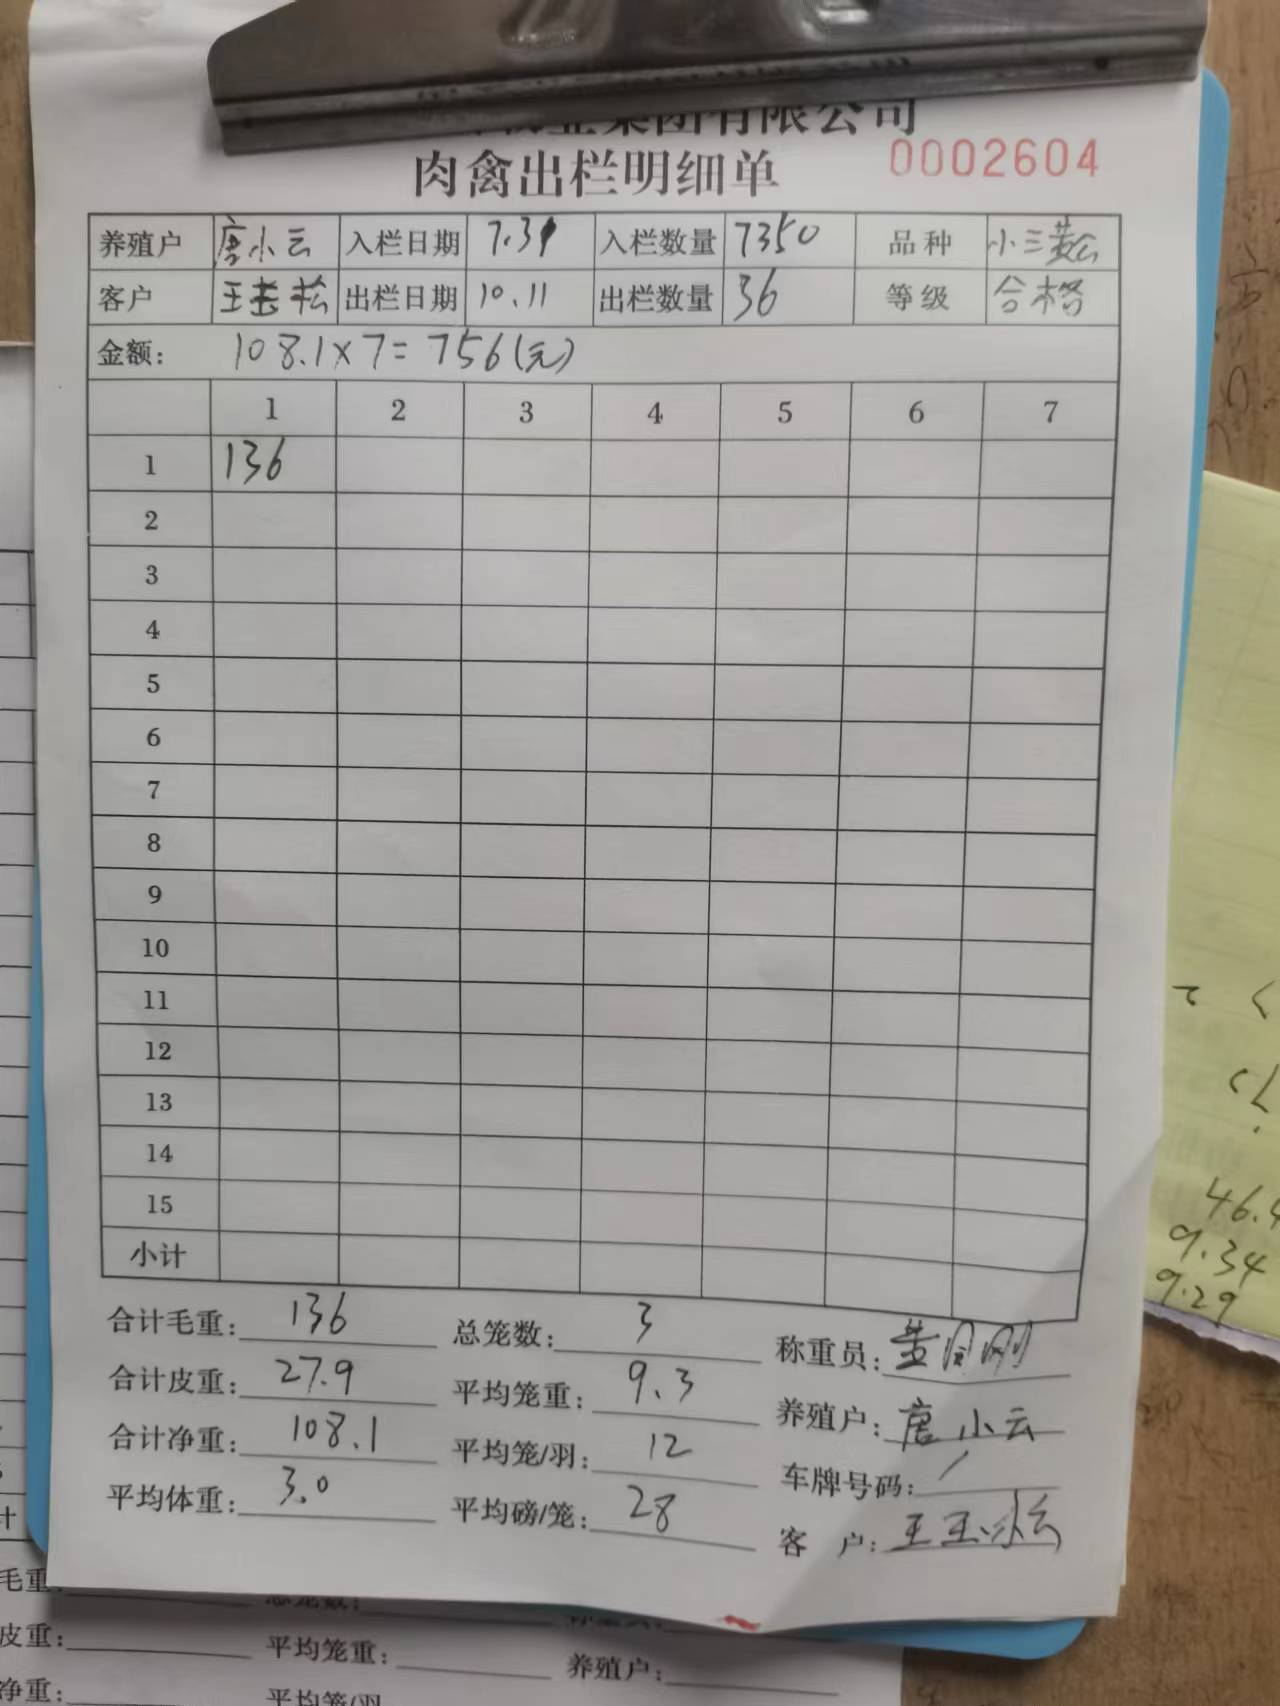 集团有限公司
肉禽出栏明细单 0002604
养殖户 唐小云 入栏日期 7.31 入栏数量 7350 品种 小三黄公
客户 王玉松 出栏日期 10.11 出栏数量 36 等级 合格
金额: 108.1×7=756(元)
1 2 3 4 5 6 7
1 136
2
3
4
5
6
7
8
9
10
11
12
13
14
15
小计
合计毛重: 136 总笼数: 3 称重员: 黄国刚
合计皮重: 27.9 平均笼重: 9.3 养殖户: 唐小云
合计净重: 108.1 平均笼/羽: 12 车牌号码: /
平均体重: 3.0 平均磅/笼: 28 客 户: 王玉松
46.4
9.34
9.29
毛重: 总笼数:
皮重: 平均笼重: 养殖户:
净重: 平均笼/羽